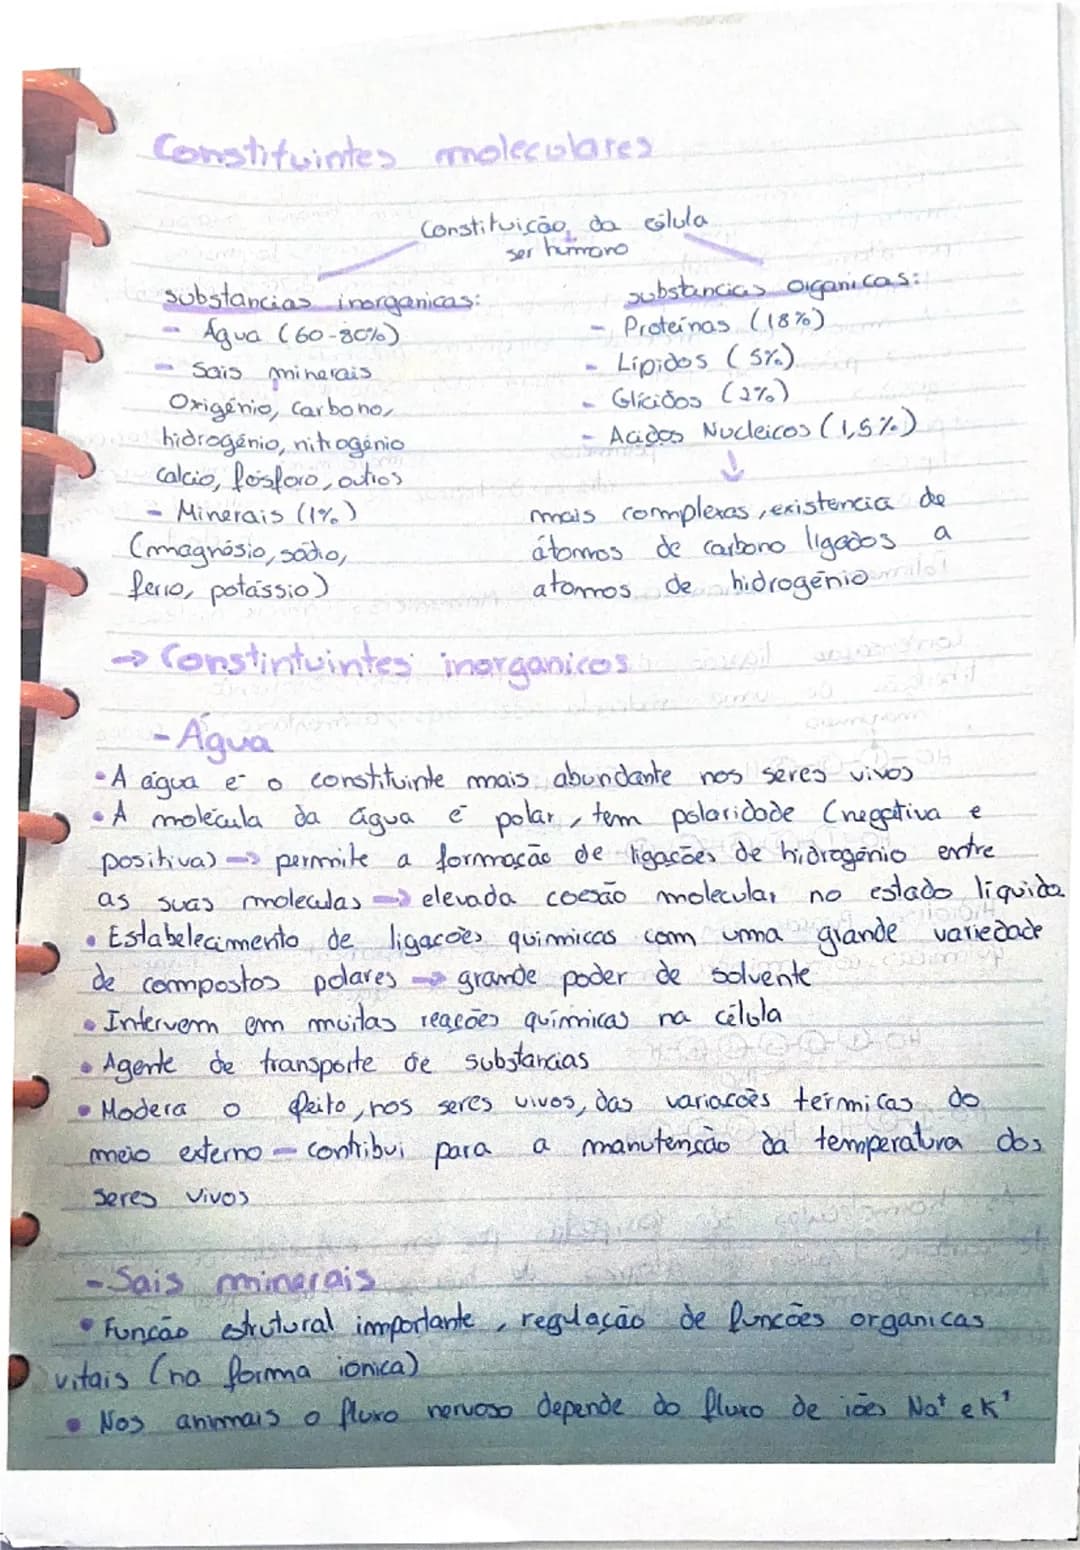 Constituintes moleculares
Constituição da célula
ser humano
substancias inorganicas:
- Água (60-80%)
- Sais minerais
Oxigénio, Carbono,
hidrogénio, nitrogénio
calcio, fósforo, outros
- Minerais (1%)
(magnésio, sódio,
ferro, potássio)
substancias organicas:
- Proteínas (18%)
- Lípidos (5%)
- Glícidos (2%)
- Acidos Nucleicos (1,5%)
↓
mais complexas, existencia de
átomos de carbono ligados a
atomos de hidrogénio
→ Constintuintes inorganicos
- Água
• A água é o constituinte mais abundante nos seres vivos
• A molécula da água é polar, tem polaridade (negativa e
positiva) → permite a formação de ligações de hidrogénio entre
as suas moleculas → elevada coesão molecular no estado líquido
• Estabelecimento de ligações quimicas com uma grande variedade
de compostos polares → grande poder de solvente
• Intervem em muitas reações químicas na célula
• Agente de transporte de substancias
• Modera o feito, nos seres vivos, das variações térmicas do
meio externo - contribui para a manutenção da temperatura dos
seres vivos
- Sais minerais
• Função estrutural importante, regulação de funções organicas
vitais (na forma iónica)
• Nos animais o fluxo nervoso depende do fluxo de iões Na⁺ e K⁺